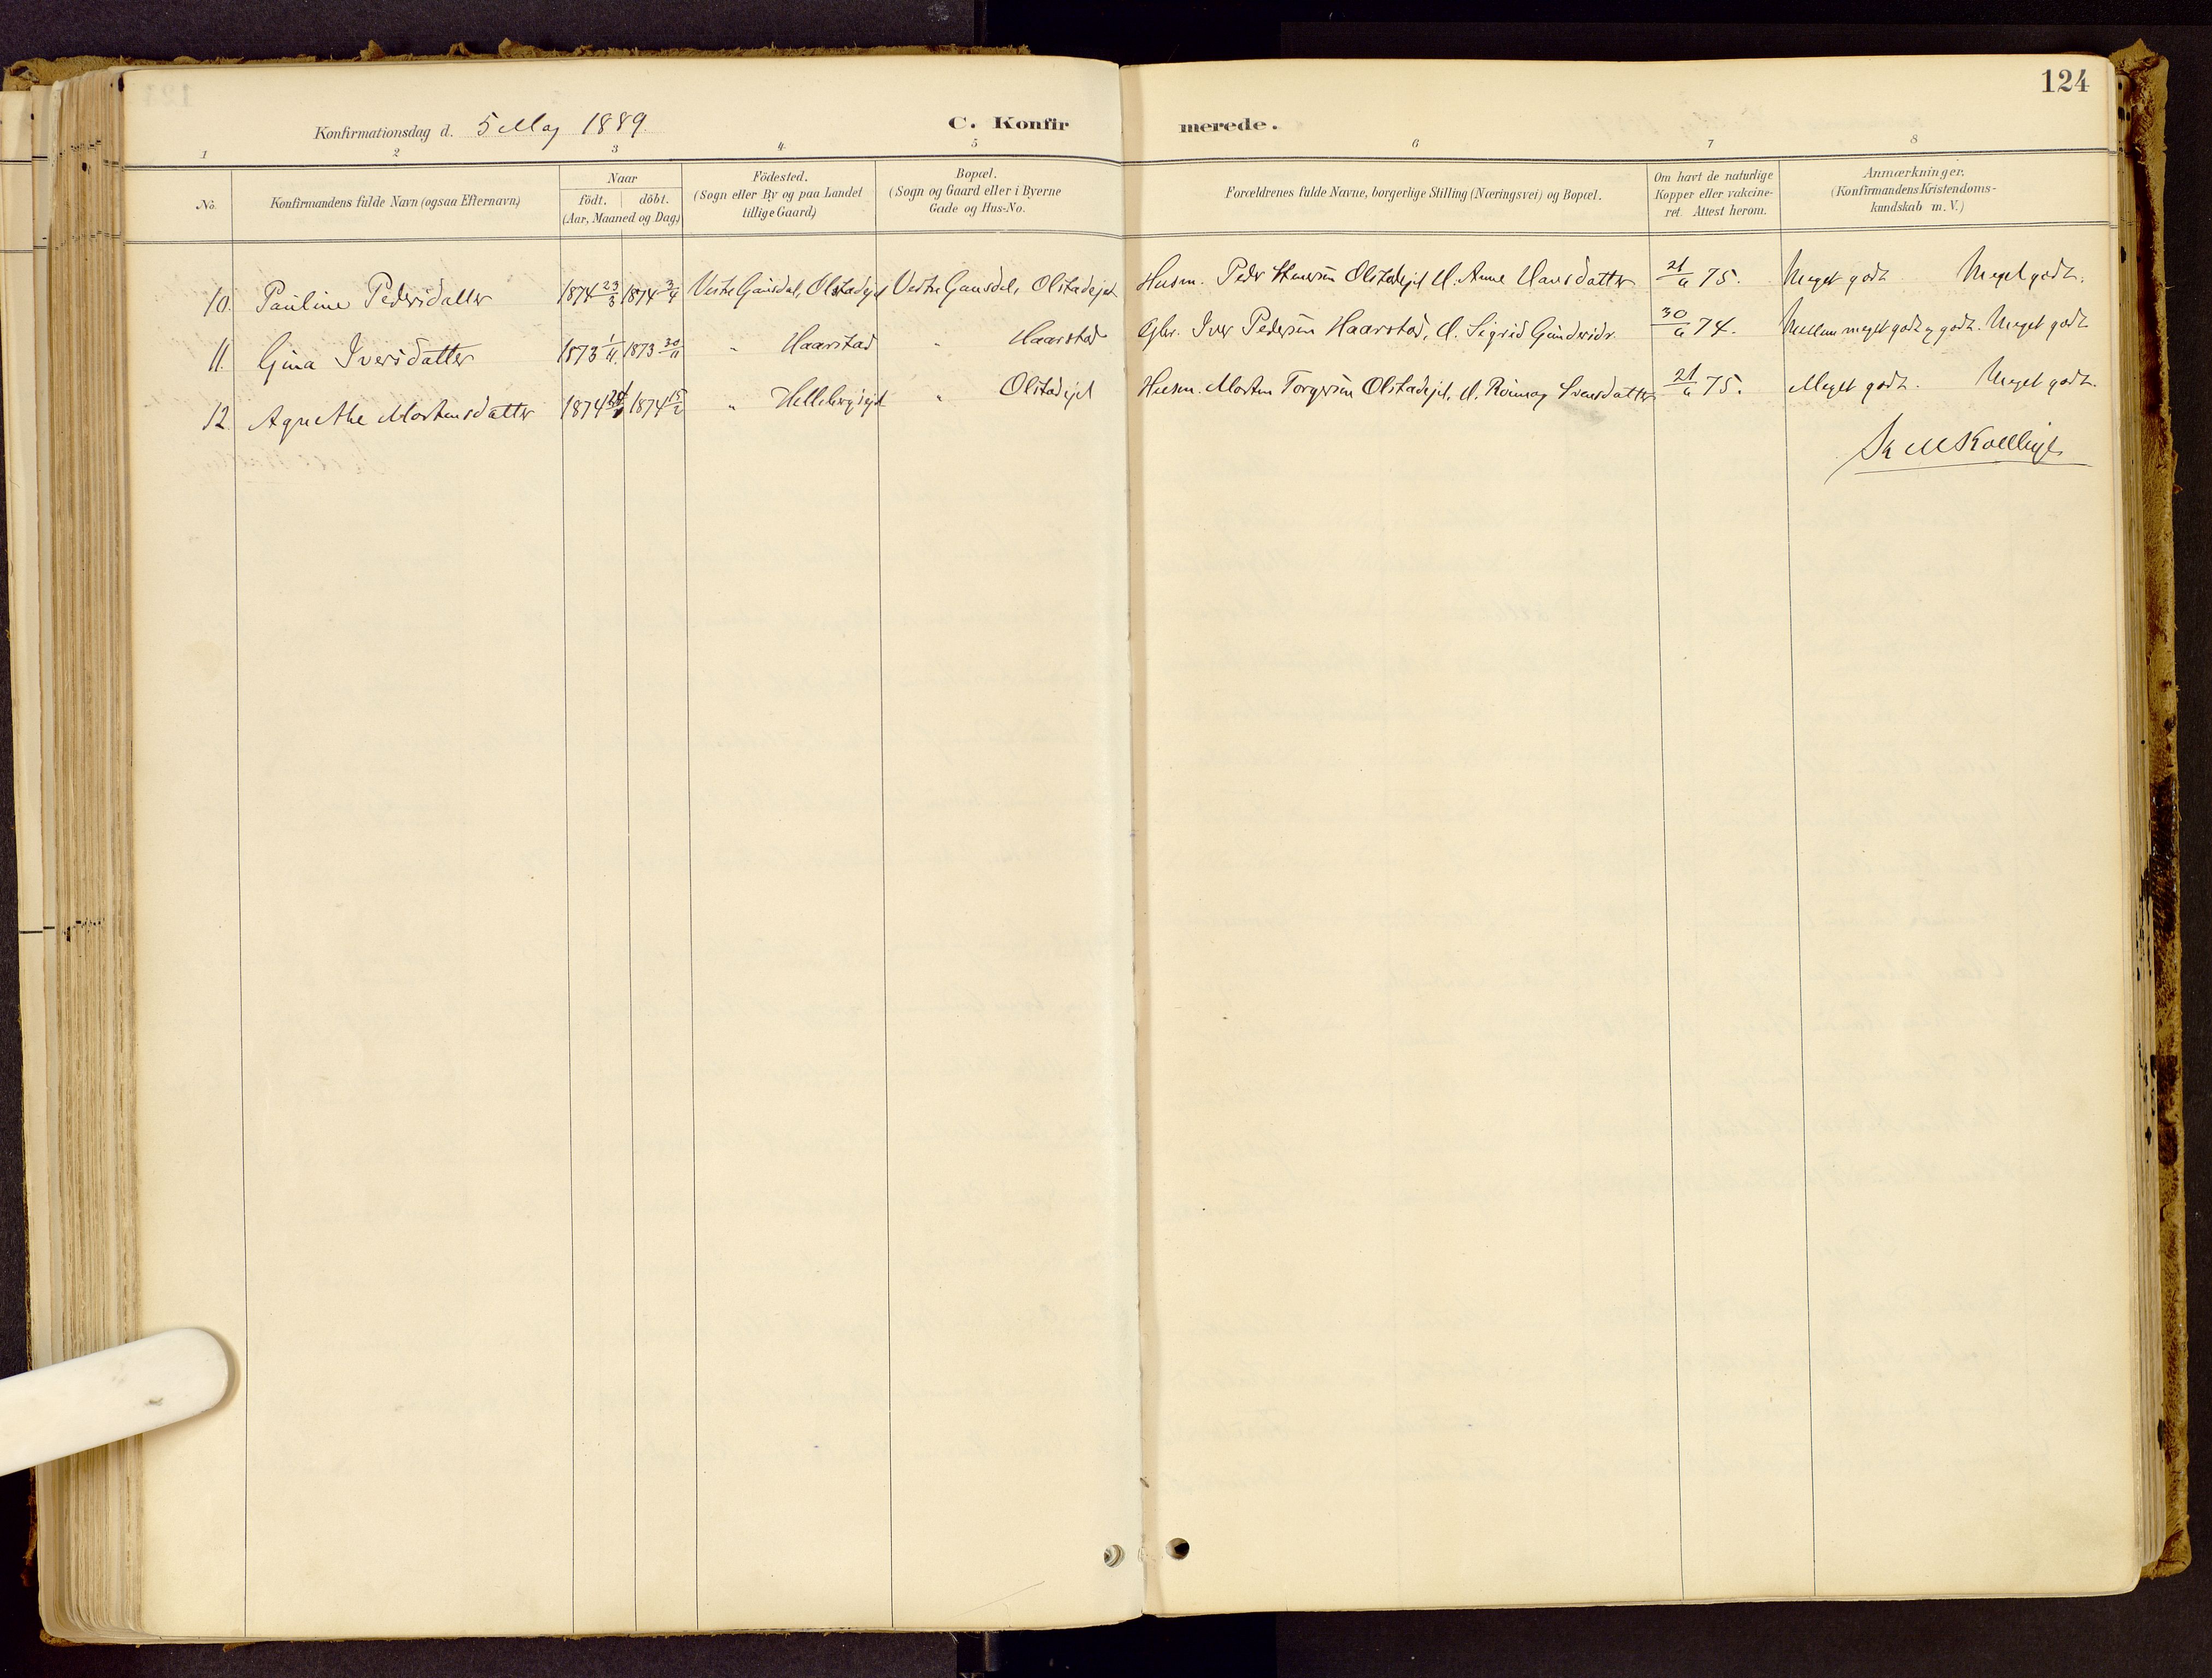 124
Konfirmationsdag d. 5 May 1889.
C. Konfirmerede.
1 2 3 4. 5 6 7 8
No. Konfirmandens fulde Navn (ogsaa Efternavn)
Naar
födt. döbt.
(Aar, Maaned og Dag)
Födested.
(Sogn eller By og paa Landet
tillige Gaard)
Bopæl.
(Sogn og Gaard eller i Byerne
Gade og Hus-No.
Forældrenes fulde Navne, borgerlige Stilling (Næringsvei) og Bopæl.
Om havt de naturlige
Kopper eller vakcine-
ret. Attest herom.
Anmærkninger.
(Konfirmandens Kristendoms-
kundskab m. V.)
10. Pauline Pedersdatter 1874 23/3 1874 3/4 Vestre Gausdal, Olstadejet Vestre Gausdal, Olstadejet Husm. Peder Olstadejet M. Anne Hansdatter 21/6 75. Meget godt Meget godt.
11. Gina Iversdatter 1873 1/11 1873 30/11 " Haarstad " Haarstad Gbr. Iver Pedersen Haarstad, M. Sigrid Gundersdr. 30/6 74. Mellem meget godt og godt. Meget godt
12. Agnethe Mortensdatter 1874 1874 15/2 " Hellebergsejet " Olstadejet Husm. Morten Torgersen Olstadejet, M. Rönnog Svensdatter 21/6 75. Meget godt. Meget godt.